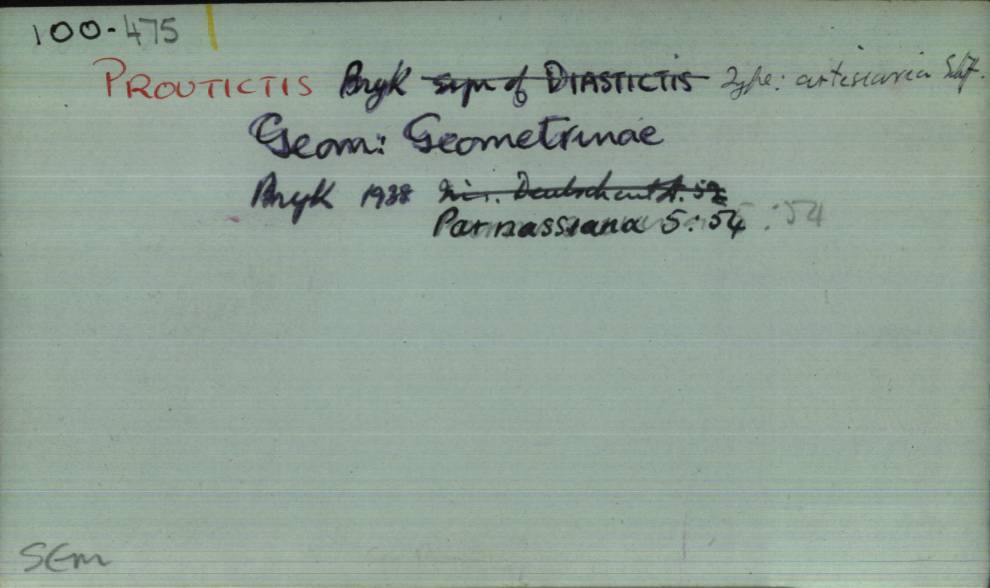 100-475
PROUTICTIS Bryk syn of DIASTICTIS Type: artesiaria Schf.
Geom: Geometrinae
Bryk 1938 Deutsch ent
Parnassiana 5: 54 : 54
SEM